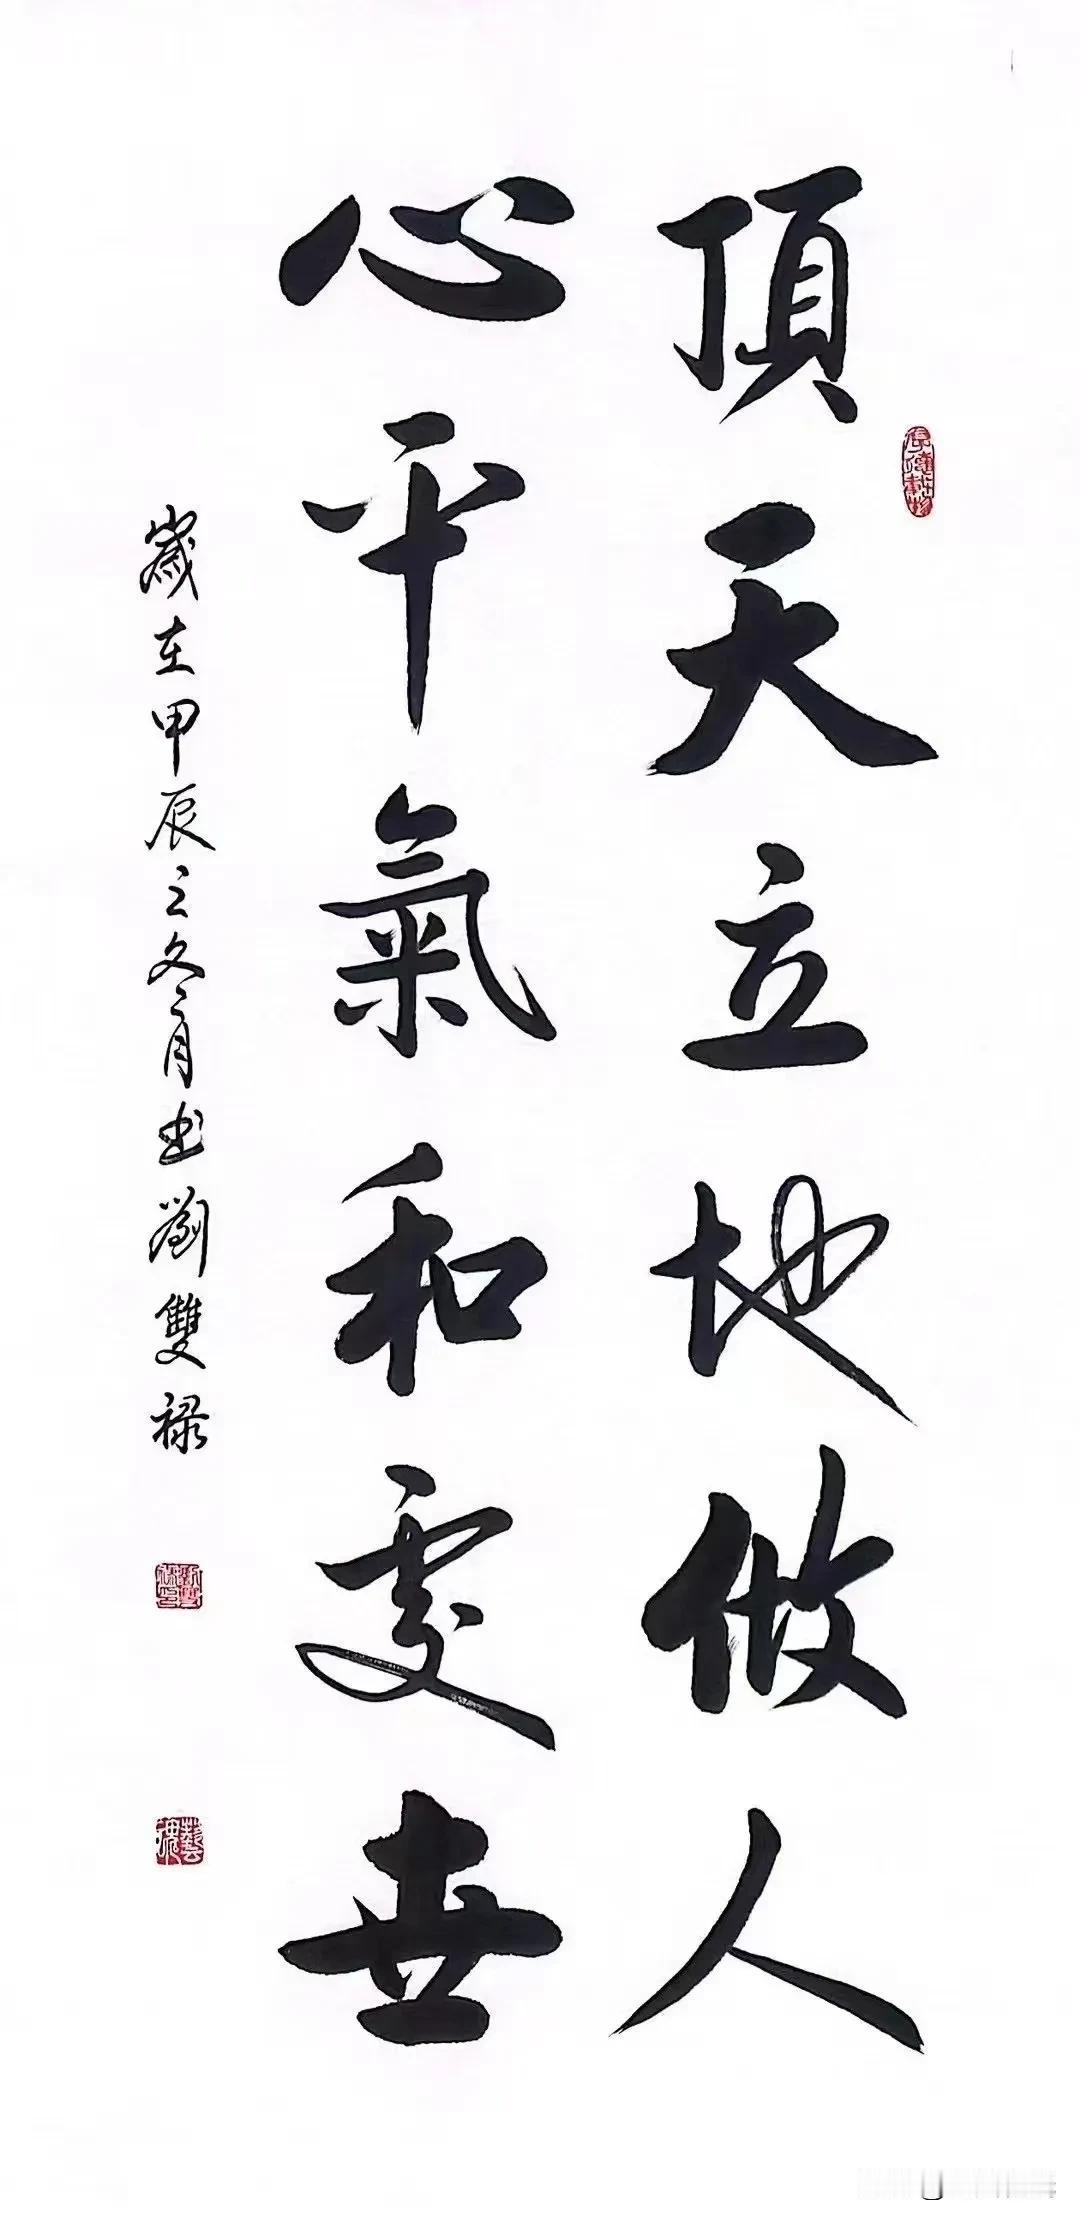 頂天立地做人
心平氣和處世
歲在甲辰之冬月書劉雙祿
藝魂